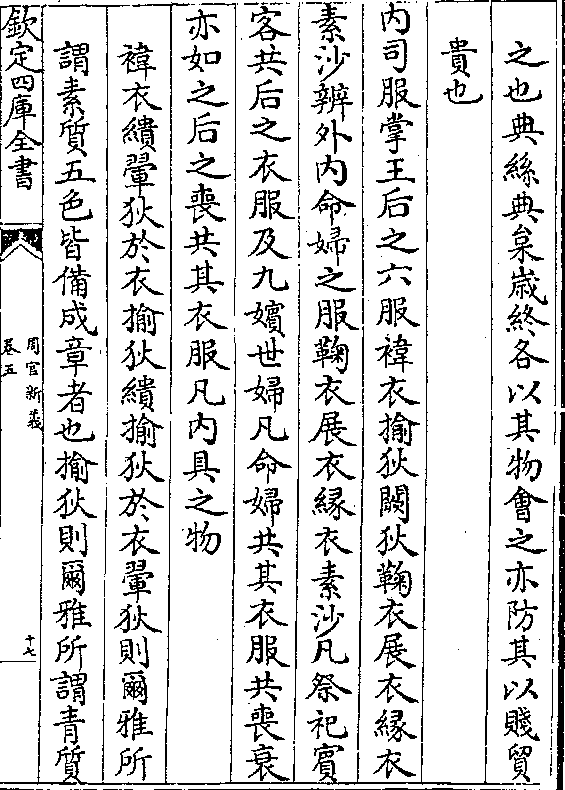 之也典絲典枲歲終各以其物會之亦防其以賤貿
貴也
内司服掌王后之六服褘衣揄狄闕狄鞠衣展衣緣衣
素沙辨外内命婦之服鞠衣展衣緣衣素沙凡祭祀賓
客共后之衣服及九嬪世婦凡命婦共其衣服共喪衰
亦如之后之喪共其衣服凡内具之物
褘衣繢翬狄於衣揄狄繢揄狄於衣翬狄則爾雅所
謂素質五色皆備成章者也揄狄則爾雅所謂青質
欽定四庫全書
周官新義
卷五
十七